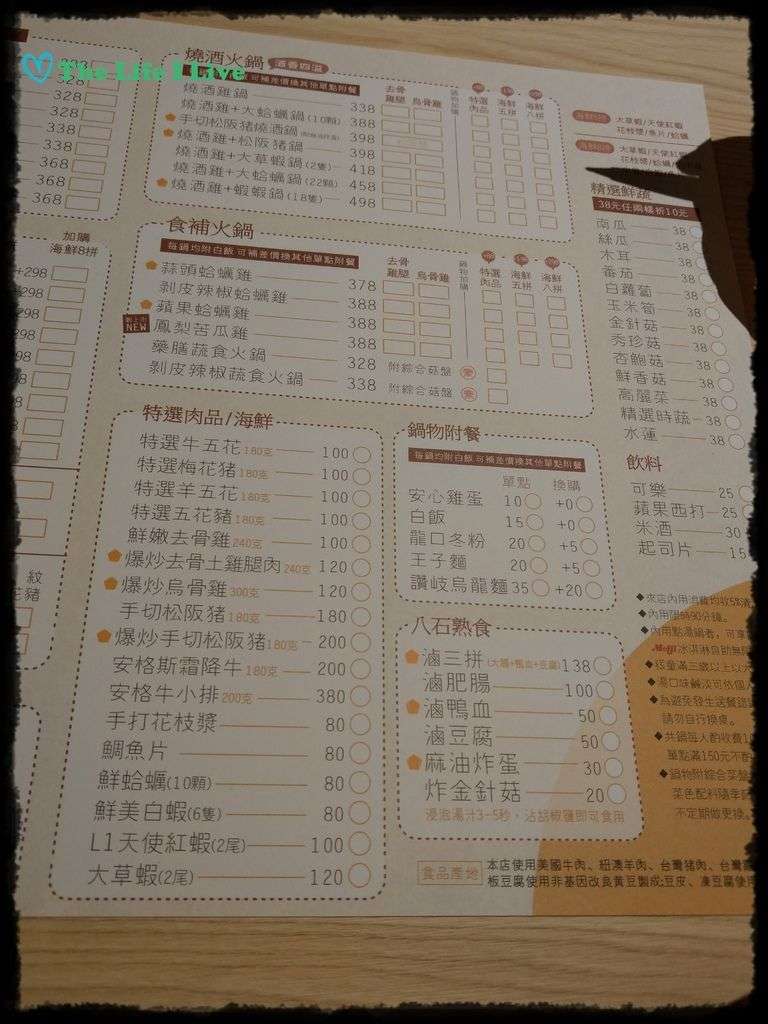 The Life I Live
328
328
328
328
338
338
368
368
368
加購
海鮮8拼
+298
298
298
298
298
紋
花豬
燒酒火鍋 酒香四溢
可補差價換其他單點附餐
去骨雞腿 烏骨雞 特選肉品 海鮮五拼 海鮮八拼
燒酒雞鍋 338
燒酒雞+大蛤蠣鍋(10顆) 388
手切松阪豬燒酒鍋 398
燒酒雞+松阪豬鍋 398
燒酒雞+大草蝦鍋(2隻) 418
燒酒雞+大蛤蠣鍋(22顆) 458
燒酒雞+蝦蝦鍋(18隻) 498
大草蝦/天使紅蝦
花枝漿/魚片/蛤蠣
大草蝦/天使紅蝦
花枝漿/蛤蠣
食補火鍋
每鍋均附白飯 可補差價換其他單點附餐
去骨雞腿 烏骨雞 鍋物加購 特選肉品 海鮮五拼 海鮮八拼
蒜頭蛤蠣雞 378
剝皮辣椒蛤蠣雞 388
蘋果蛤蠣雞 388
NEW 鳳梨苦瓜雞 388
藥膳蔬食火鍋 328 附綜合菇盤 素
剝皮辣椒蔬食火鍋 338 附綜合菇盤 素
精選鮮蔬
38元任兩樣折10元
南瓜 38
絲瓜 38
木耳 38
番茄 38
白蘿蔔 38
玉米筍 38
金針菇 38
秀珍菇 38
杏鮑菇 38
鮮香菇 38
高麗菜 38
精選時蔬 38
水蓮 38
飲料
可樂 25
蘋果西打 25
米酒 30
起司片 15
特選肉品/海鮮
特選牛五花180克 100
特選梅花豬180克 100
特選羊五花180克 100
特選五花豬180克 100
鮮嫩去骨雞240克 100
爆炒去骨土雞腿肉240克 120
爆炒烏骨雞300克 120
手切松阪豬180克 180
爆炒手切松阪豬180克 200
安格斯霜降牛180克 200
安格牛小排200克 380
手打花枝漿 80
鯛魚片 80
鮮蛤蠣(10顆) 80
鮮美白蝦(6隻) 80
L1天使紅蝦(2尾) 100
大草蝦(2尾) 120
鍋物附餐
每鍋均附白飯 可補差價換其他單點附餐
單點 換購
安心雞蛋 10 +0
白飯 15 +0
龍口冬粉 20 +5
王子麵 20 +5
讚岐烏龍麵 35 +20
八石熟食
滷三拼(大腸+鴨血+豆腐) 138
滷肥腸 100
滷鴨血 50
滷豆腐 50
麻油炸蛋 30
炸金針菇 20
浸泡湯汁3-5秒，沾胡椒鹽即可食用
◆來店內用消費均收5%
◆內用限時90分鐘。
◆內用點湯鍋者，可享
冰淇淋自助無限
◆孩童滿三歲以上以
◆湯口味鹹淡可依個人
◆為避免發生送餐錯
請勿自行換桌。
◆共鍋每人酌收費
單點滿150元不
◆鍋物附綜合菜盤
菜色配料隨季
不定期做更換。
食品產地 本店使用美國牛肉、紐澳羊肉、台灣豬肉、台灣
板豆腐使用非基因改良黃豆製成;豆皮、凍豆腐使